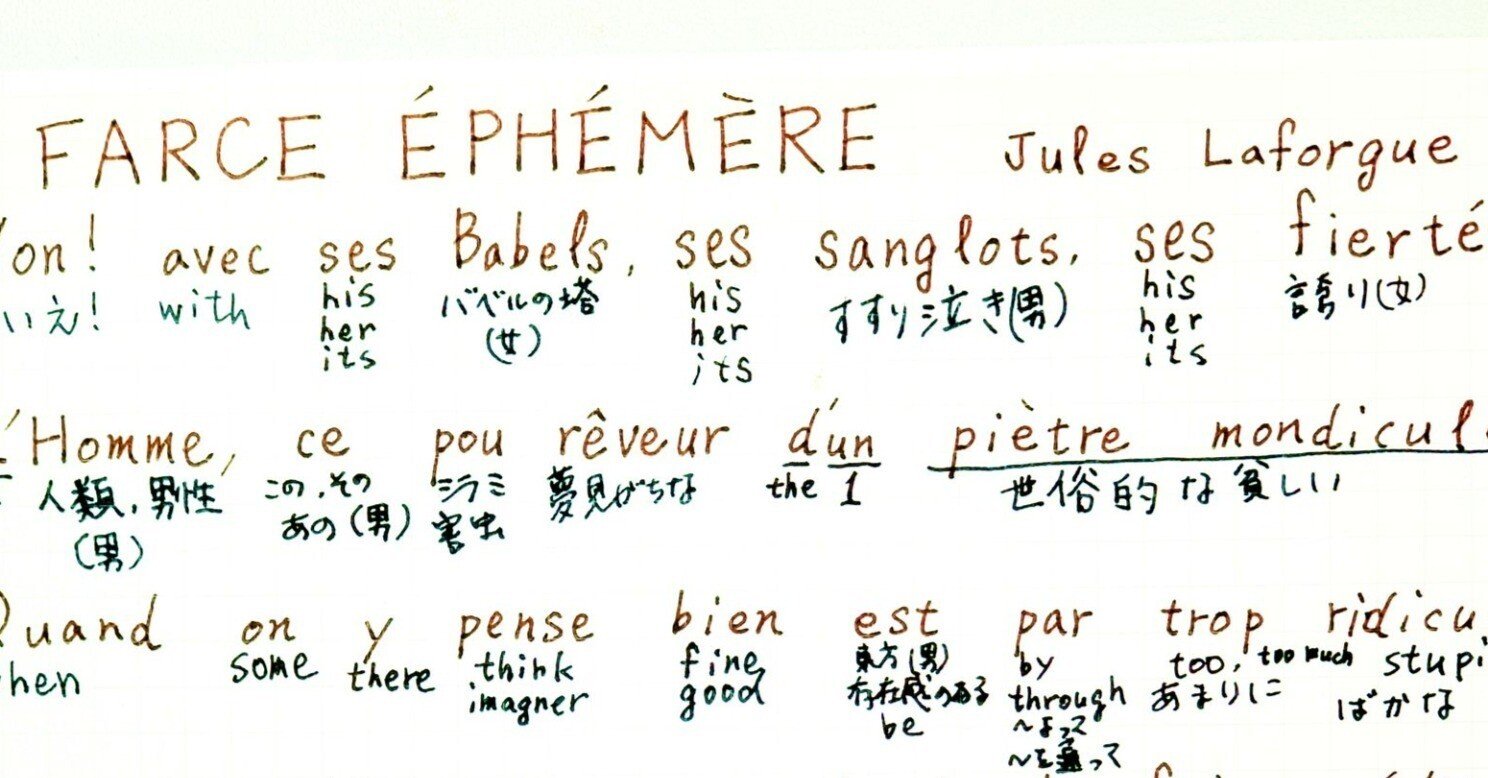 FARCE ÉPHÉMÈRE Jules Laforgue
on! avec ses Babels, ses sanglots, ses fierté
いえ! with his バベルの塔 his すすり泣き(男) his 誇り(女)
her (女) her her
its its its
L'Homme, ce pou rêveur d'un piètre mondicul
人類,男性 この,その シラミ 夢見がちな the 1 世俗的な貧しい
(男) あの(男) 害虫
Quand on y pense bien est par trop ridicu
hen some there think fine 東方(男) by too, too much stupi
imagner good 存在感のある through あまりに ばかな
be ~よって
~を通って